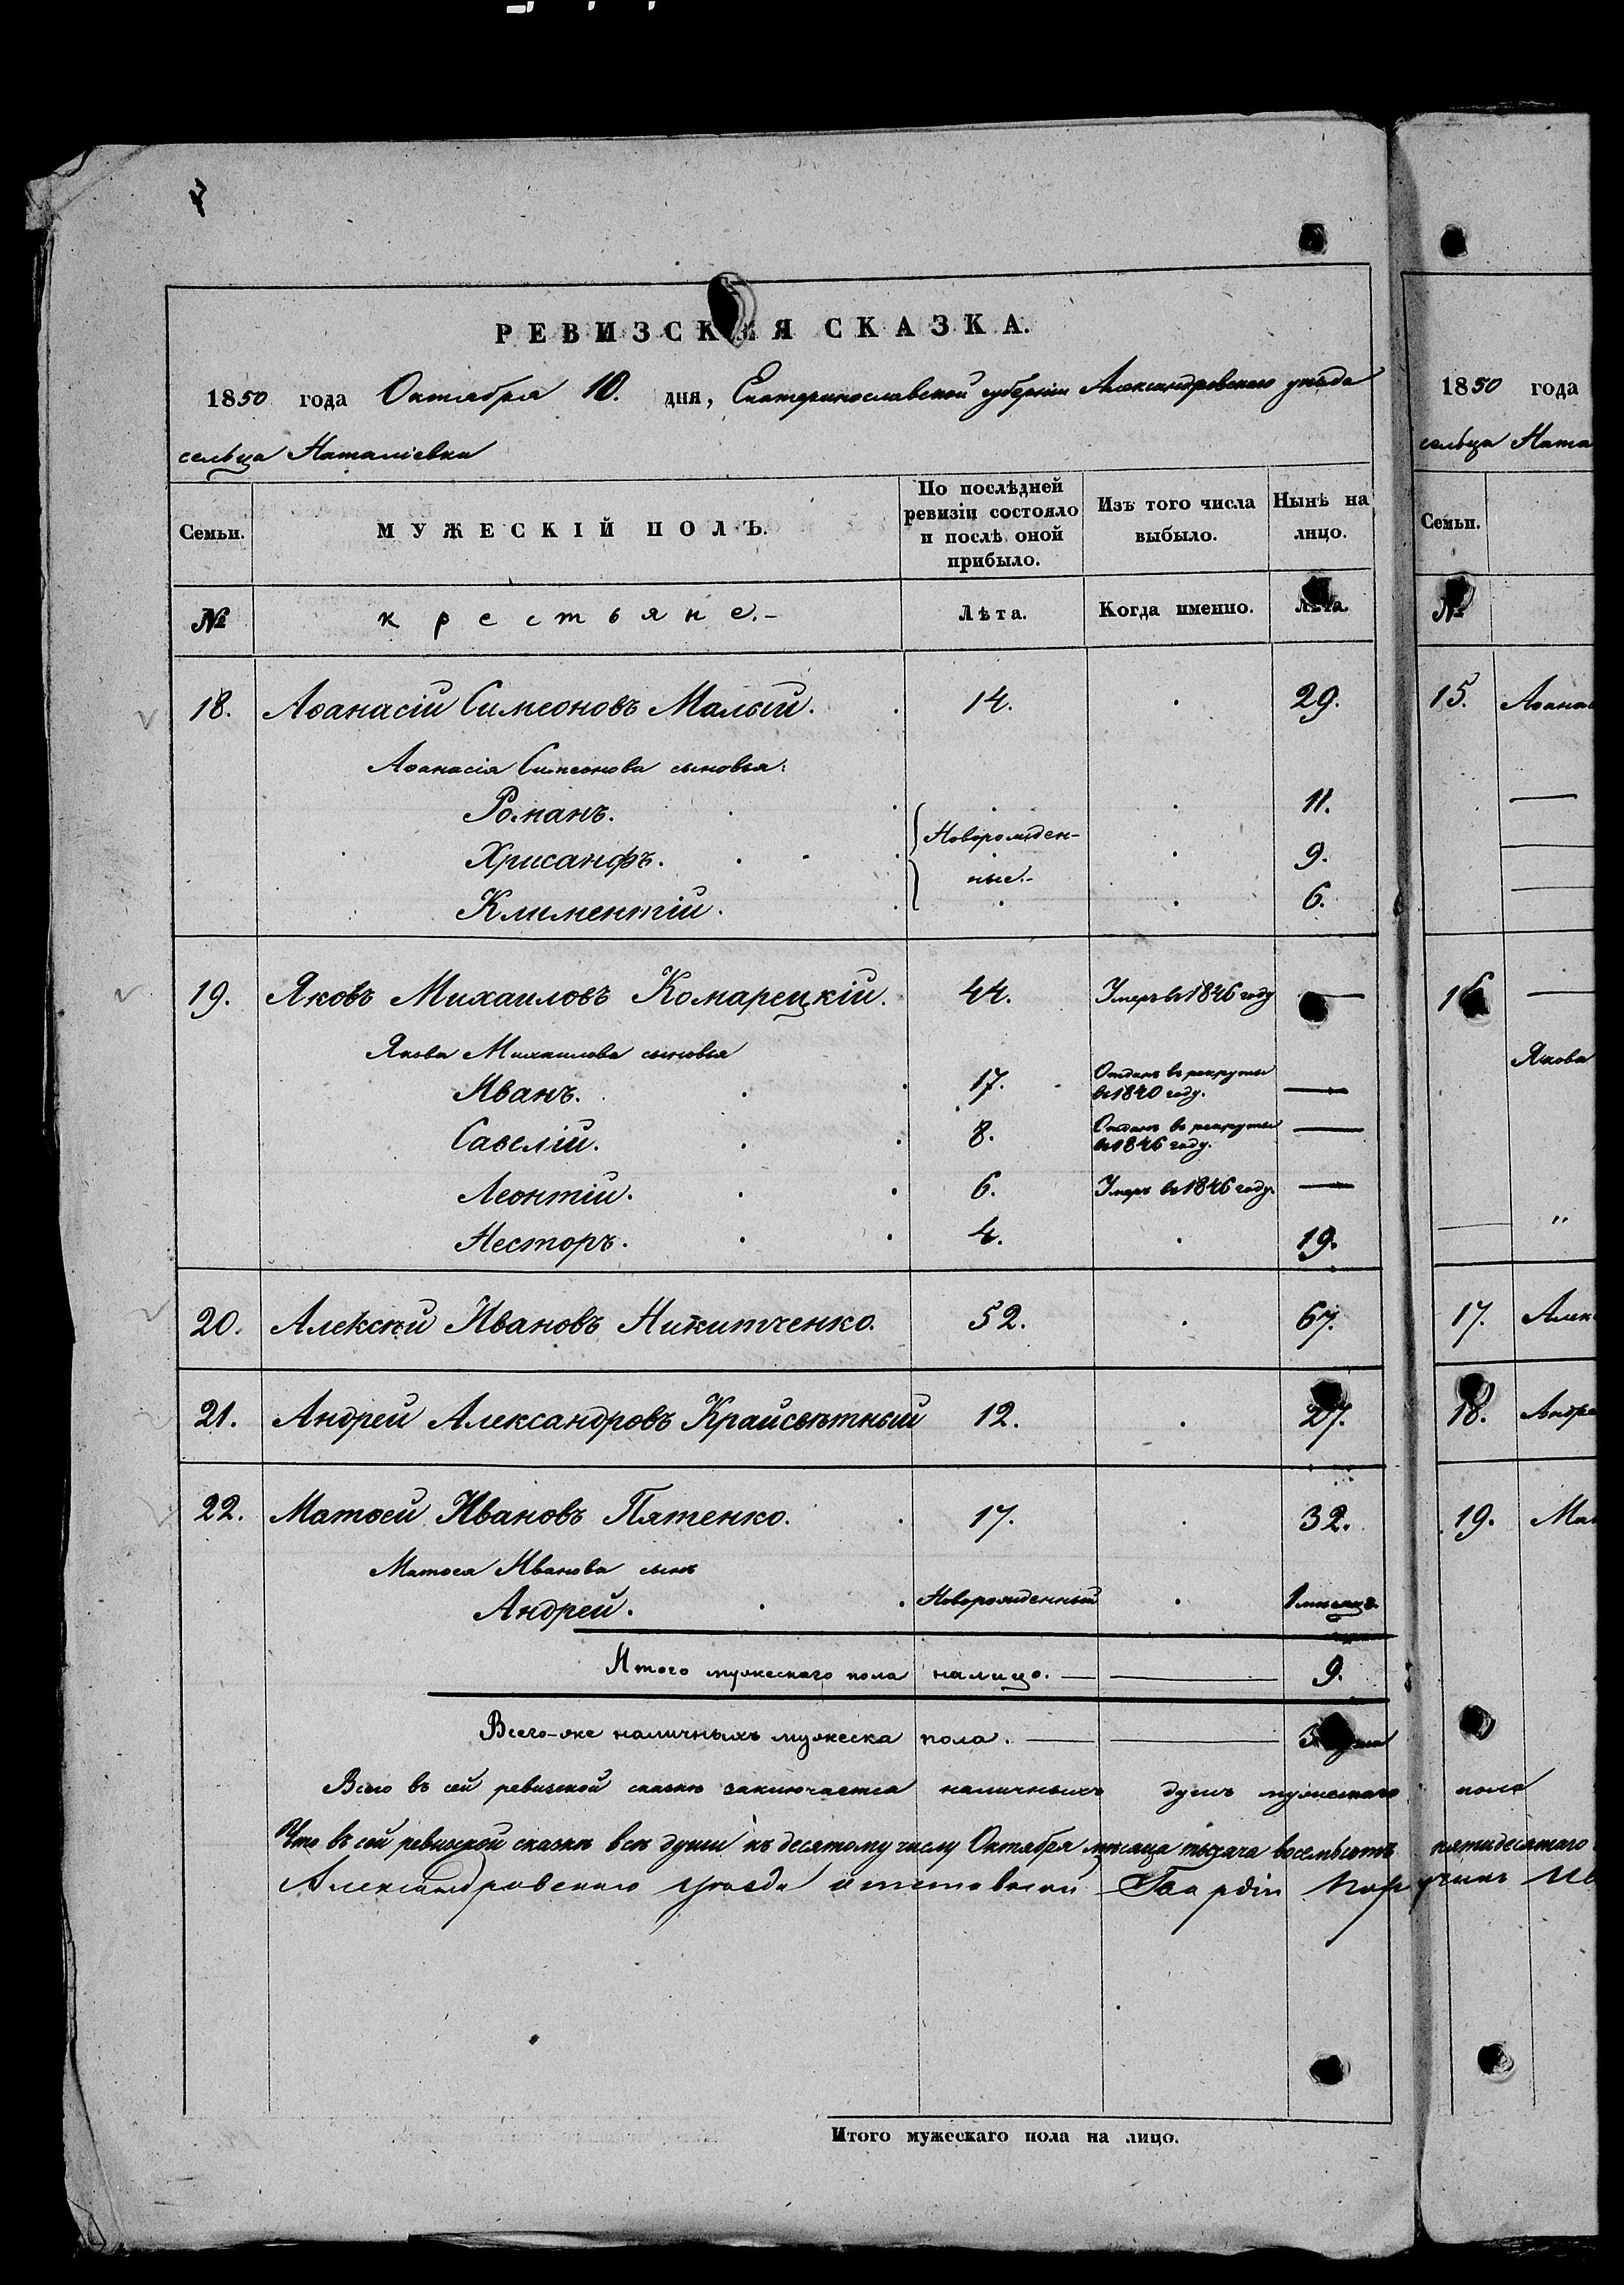 РЕВИЗСКАЯ СКАЗКА.
1850 года Октября 10. дня, Екатеринославской губерніи Александровскаго уѣзда
сельца Наталіевки
Семьи. МУЖЕСКІЙ ПОЛЪ. По послѣдней ревизіи состояло и послѣ оной прибыло. Изъ того числа выбыло. Нынѣ на лицо.
№ крестьяне.- Лѣта. Когда именно. Лѣта.
18. Аѳанасій Симеоновъ Малый. 14. 29.
Аѳанасія Симеонова сыновья:
Романъ. 11.
Новорожден-
Хрисанфъ. 9.
ные.-
Климентій. 6.
19. Яковъ Михаиловъ Комарецкій. 44. Умеръ въ 1846 году —
Якова Михаилова сыновья
Иванъ. 17. Отданъ въ рекруты въ 1840 году. —
Савелій. 8. Отданъ въ рекруты въ 1846 году. —
Леонтій. 6. Умеръ въ 1846 году. —
Несторъ. 4. 19.
20. Алексѣй Ивановъ Никитченко. 52. 67.
21. Андрей Александровъ Крайсвѣтный 12. 27.
22. Матвей Ивановъ Пятенко. 17. 32.
Матвея Иванова сынъ
Андрей. Новорожденный 1 мѣсяцъ.
Итого мужескаго пола налицо. — — 9.
Всего-же наличныхъ мужеска пола. — —
Всего въ сей ревизской сказкѣ заключается наличныхъ душъ мужескаго пола
Что въ сей ревизской сказкѣ всѣ души къ десятому числу Октября мѣсяца тысяча восемьсотъ пятидесятаго
Александровскаго уѣзда
Итого мужескаго пола на лицо.
1850 года
сельца Ната
Семьи.
№
15. Аѳанас
16.
Якова
"
17. Алек
18. Андре
19. Мат